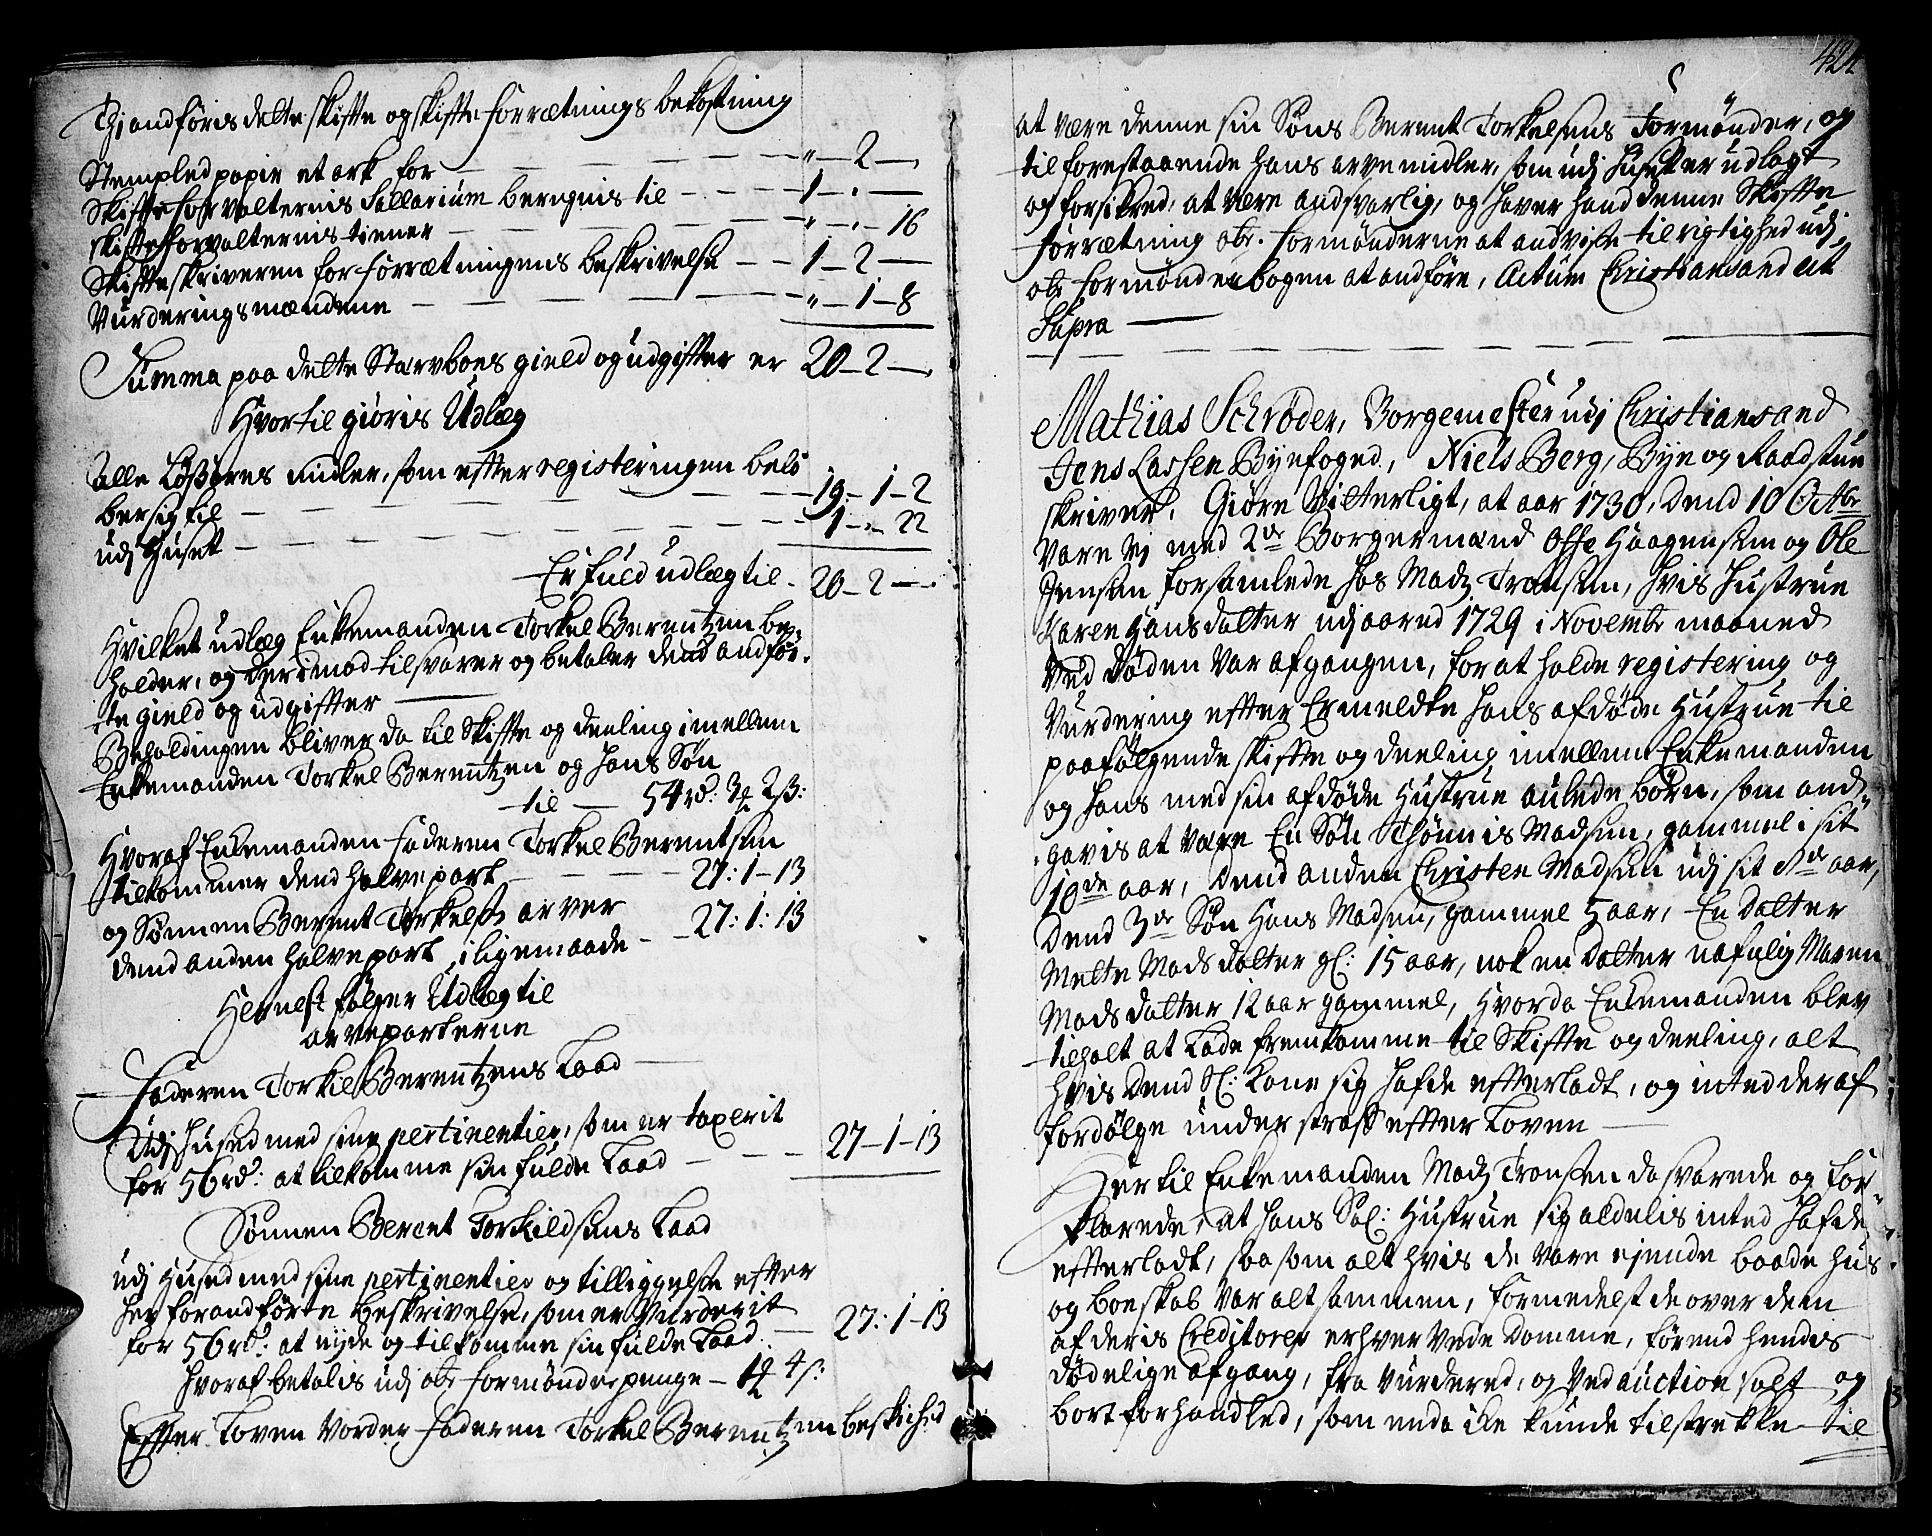 Til andføris dette skifte og skifte forrætnings bekostning
Stempled papir et ark for — — — " — 2 —
Skifte forvalternis Sallarium beregnis til — — 1 — " —
skifteforvalternis tiener — — — " — " — 16
Skifteskriveren for forrætningens beskrivelse — — 1 — 2 —
Vurderingsmændene — — — " — 1 — 8
Summa paa dette Stervboes gield og udgifter er 20 — 2 —
Hvortil giøris Udlæg
alle Løsøres midler, som efter registeringen belø
ber sig til — — — 19 — 1 — 2
udj Huset — — — 1 — " — 22
Er fuld udlæg til 20 — 2 — "
Hvilket udlæg Enkemanden Torkel Berentzen be-
holder, og derimod tilsvarer og betaler dend andfør-
te gield og udgifter —
Beholdingen bliver da til Skifte og deeling imellem
Enkemanden Torkel Berentzen og hans Søn
til — 54 rd: 3 2 ß:
Hvoraf Enkemanden faderen Torkel Berentsen
tilkommer dend halvepart — — 27: 1 — 13
og Sønnen Berent Torkels: arver
dend anden halvepart, i ligemaade — 27: 1: 13
Hernest følger Udlæg til
arveparterne
Faderen Torkil Berentzens Laad —
Udj Huset med sine pertinentier, som er taxerit
for 56 rd: at tilkomme sin fulde Laad — — 27 — 1 — 13
Sønnen Berent Torkildsens Laad
udj Hused med sine pertinentier og tilliggelse efter
her forandførte beskrivelse, som er Vurderit
for 56 rd: at nyde og tilkomme sin fulde Laad — 27: 1 — 13
hvoraf betalis udj obr formønder penge — 1 4 ß:
Efter Loven Vorder faderen Torkel Berentzen beskiched
424
at være denne sin Søns Berent Torkelsens Formønder, og
til forestaaende hans arve midler, som udj Huset er udlagt
og forsikred, at være andsvarlig, og haver hand denne Skifte
forrætning obr. formønderne at andvise til rigtighed udj
obr formønder bogen at andføre, Actum Christiansand ut
Supra —
Mathias Schrøder, Borgemester udj Christiansand
Jens Lassen Byefoged, Niels Berg, Bye og Raadstue
skriver, Giøre Vitterligt, at aar 1730, dend 10 Octbr
Vare Vj med 2de Borgermænd Offe Haagensen og Ole
Jensen forsamlede hos Madz Tronsen, hvis Hustrue
Karen Hans datter udj aared 1729 i Novembr maaned
Ved døden Var afgangen, for at holde registering og
Vurdering efter Ermeldte hans afdøde Hustrue til
paafølgende skifte og deeling imellem Enkemanden
og hans med sin afdøde Hustrue aulede børn, som and-
gavis at være En Søn Thønnis Madsen, gammel i sit
18de aar, Dend anden Christen Madsen udj sit 8de aar,
Dend 3de Søn Hans Madsen, gammel 5 aar, En datter
Mette Mads datter gl: 15 aar, nok en datter nafnlig Maren
Mads datter 12 aar gammel, Hvorda Enkemanden blev
tilholt at lade fremkomme til Skifte og deeling, alt
hvis dend Sl: Kone sig hafde efterladt, og inted deraf
fordølge under straf efter Loven —
Hertil Enkemanden Madz Tronsen da svarede og for-
klarede, at hans Sal: Hustrue sig aldelis inted hafde
efterladt, saasom alt hvis de Vare ejende baade Huus
og boeskab Var altsammen, formedelst de over dem
af deris Creditorer erhvervede domme, førend hendis
dødelige afgang, fra Vurdered, og Ved auction solt og
bort forhandled, som enda icke kunde tilstrekke til